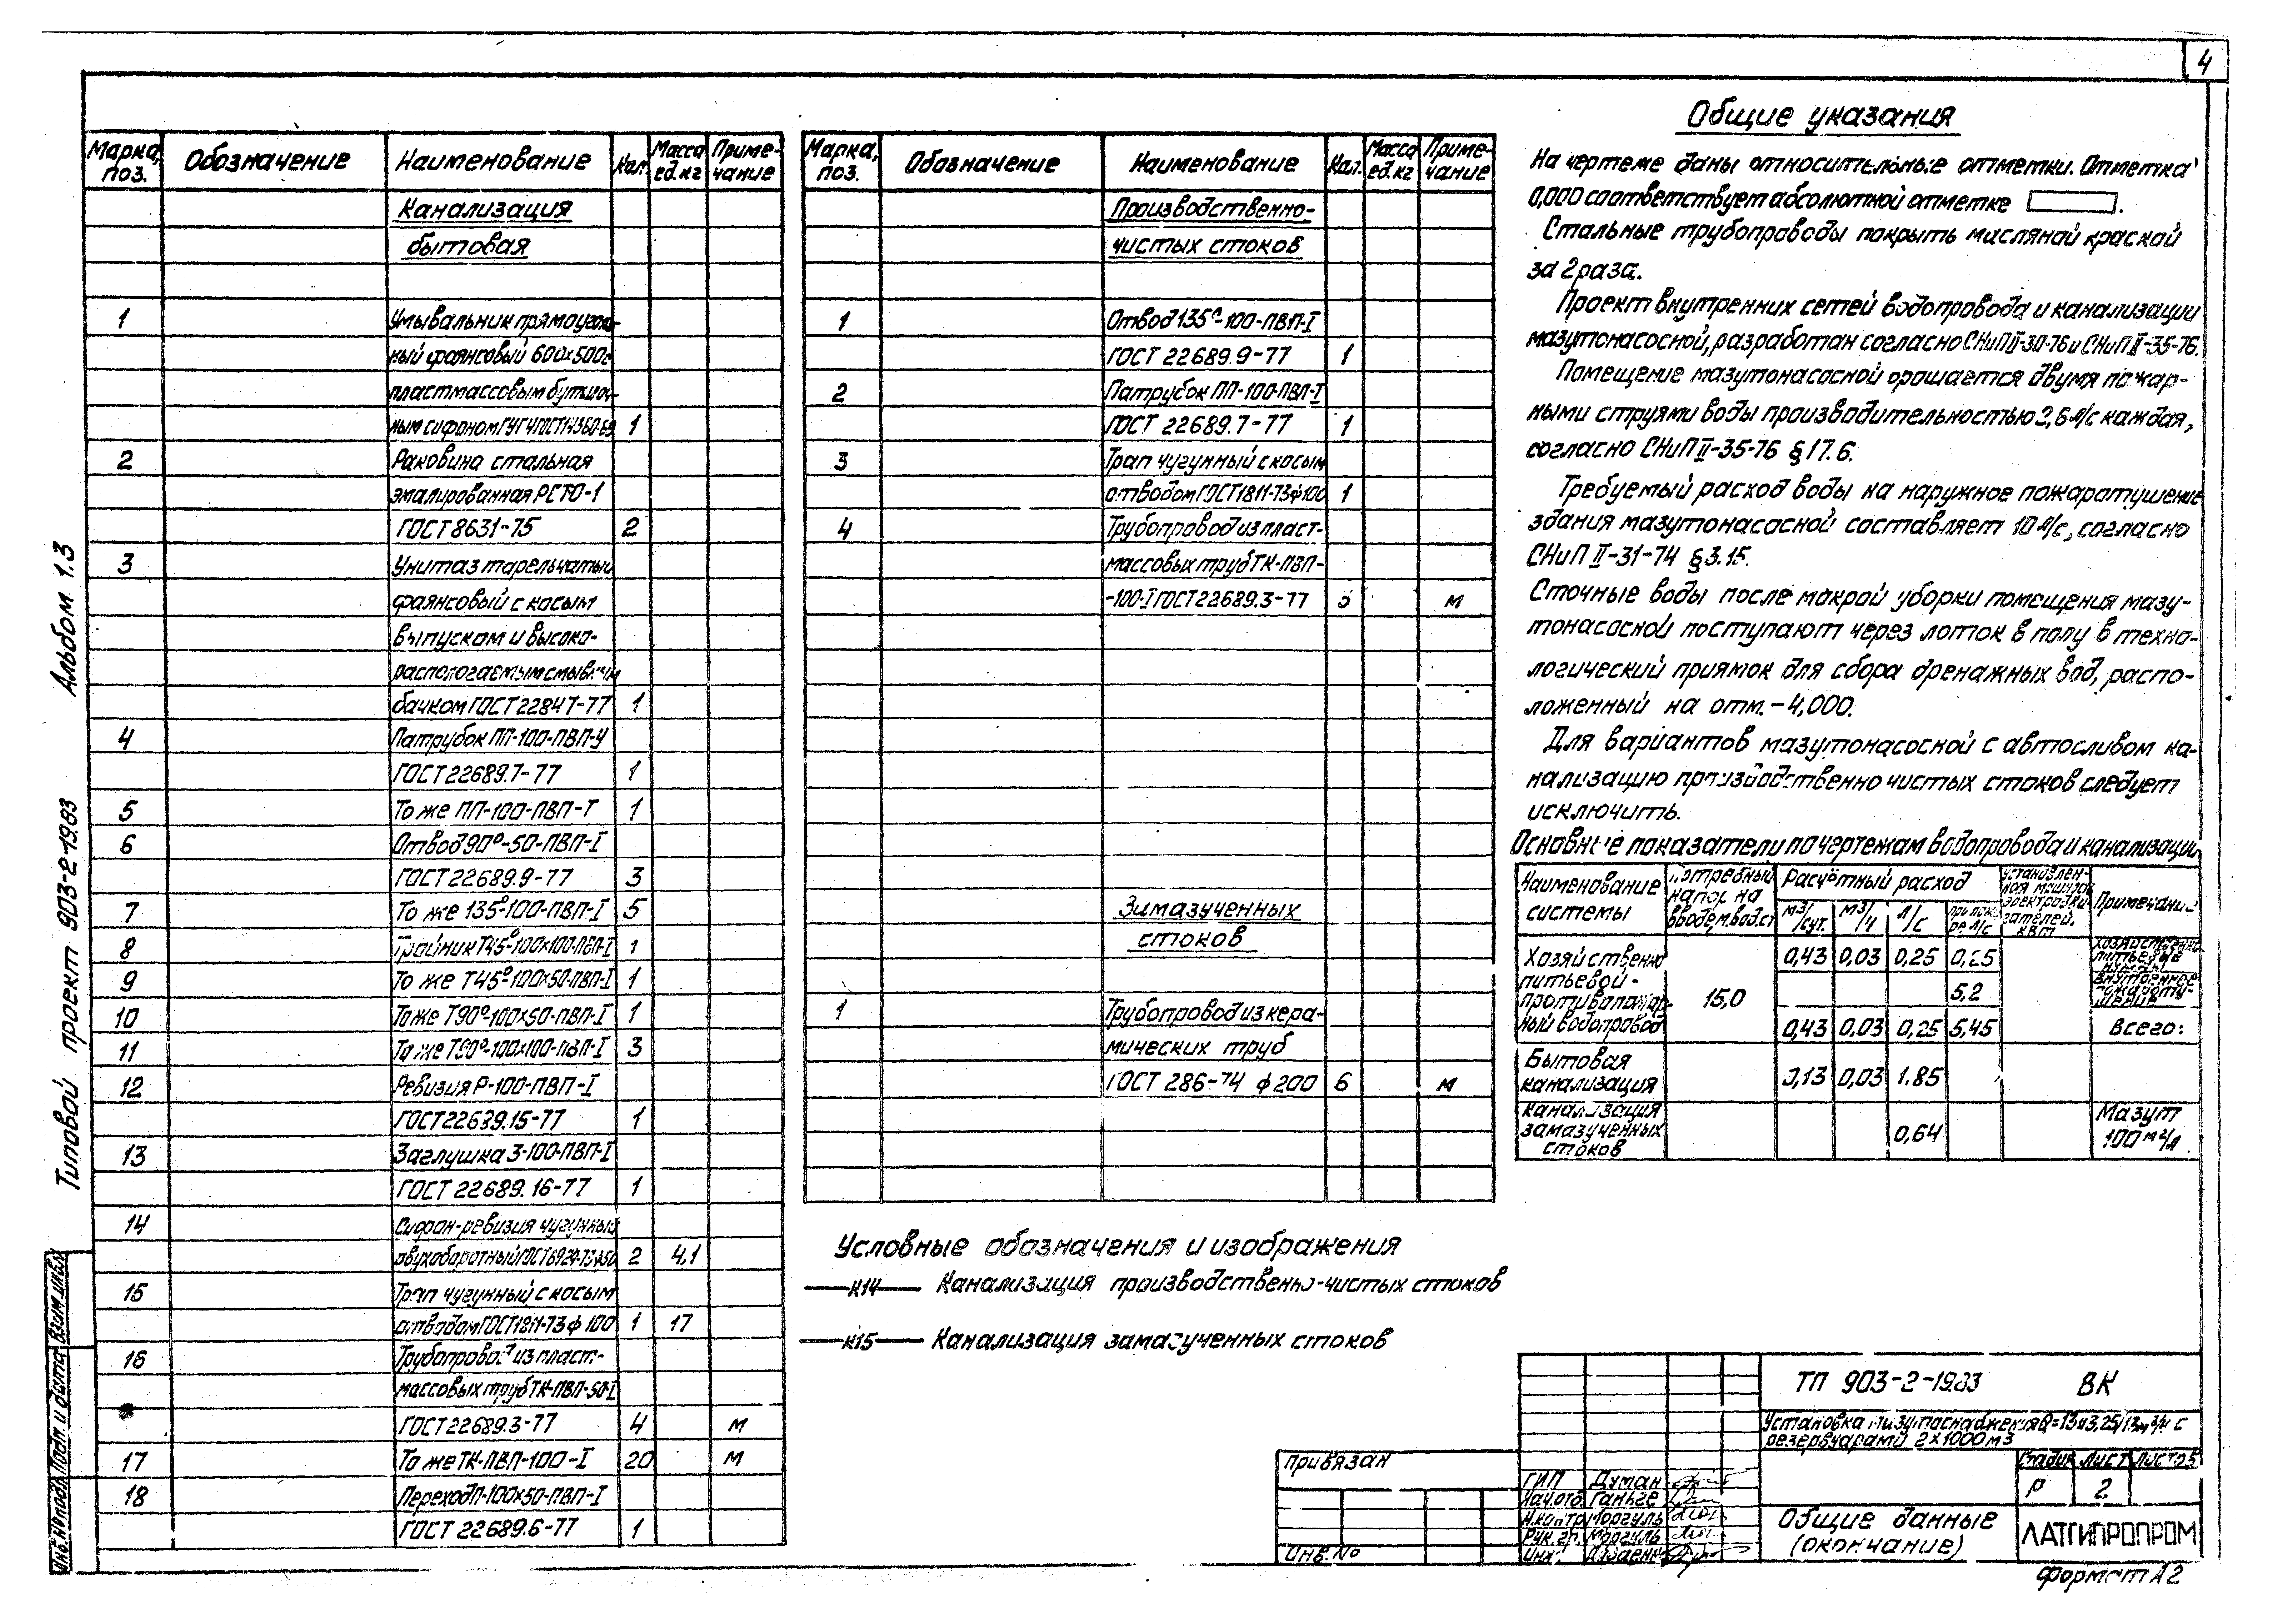 4
Альбом 1.3
Типовой проект 903-2-1983
Марка, поз. Обозначение Наименование Кол. Масса ед. кг Примечание
Канализация
бытовая
1 Умывальник прямоуголь-
ный фаянсовый 600х500с
пластмассовым бутылоч-
ным сифоном ГОСТ 14360-69 1
2 Раковина стальная
эмалированная РСТО-1
ГОСТ 8631-75 2
3 Унитаз тарельчатый
фаянсовый с косым
выпуском и высоко-
распологаемым смывным
бачком ГОСТ 22847-77 1
4 Патрубок ПП-100-ПВП-У
ГОСТ 22689.7-77 1
5 То же ПП-100-ПВП-Т 1
6 Отвод 90°-50-ПВП-I
ГОСТ 22689.9-77 3
7 То же 135°-100-ПВП-I 5
8 Тройник Т45°-100х100-ПВП-I 1
9 То же Т45°-100х50-ПВП-I 1
10 То же Т90°-100х50-ПВП-I 1
11 То же Т90°-100х100-ПВП-I 3
12 Ревизия Р-100-ПВП-I
ГОСТ 22689.15-77 1
13 Заглушка З-100-ПВП-I
ГОСТ 22689.16-77 1
14 Сифон-ревизия чугунный
двухоборотный 2 4,1
15 Трап чугунный с косым
отводом ГОСТ 1811-73 ф 100 1 17
16 Трубопровод из пласт-
массовых труб ТК-ПВП-50-I
ГОСТ 22689.3-77 4 м
17 То же ТК-ПВП-100-I 20 м
18 Переход П-100х50-ПВП-I
ГОСТ 22689.6-77 1
Марка, поз. Обозначение Наименование Кол. Масса ед. кг Примечание
Производственно-
чистых стоков
1 Отвод 135°-100-ПВП-I
ГОСТ 22689.9-77 1
2 Патрубок ПП-100-ПВП-I
ГОСТ 22689.7-77 1
3 Трап чугунный с косым
отводом ГОСТ 1811-73 ф 100 1
4 Трубопровод из пласт-
массовых труб ТК-ПВП-
-100-I ГОСТ 22689.3-77 м
Зимазученных
стоков
1 Трубопровод из кера-
мических труб
ГОСТ 286-74 ф 200 6 м
Условные обозначения и изображения
К14 Канализация производственно-чистых стоков
К15 Канализация замазученных стоков
Общие указания
На чертеже даны относительные отметки. Отметка
0,000 соответствует абсолютной отметке .
Стальные трубопроводы покрыть масляной краской
за 2 раза.
Проект внутренних сетей водопровода и канализации
мазутонасосной, разработан согласно СНиП II-30-76 и СНиП II-35-76.
Помещение мазутонасосной орошается двумя пожар-
ными струями воды производительностью 2,6 л/с каждая,
согласно СНиП II-35-76 § 17.6.
Требуемый расход воды на наружное пожаротушение
здания мазутонасосной составляет 10 л/с, согласно
СНиП II-31-74 § 3.15.
Сточные воды после мокрой уборки помещения мазу-
тонасосной поступают через лоток в полу в техно-
логический приямок для сбора дренажных вод, распо-
ложенный на отм. -4,000.
Для вариантов мазутонасосной с автосливом ка-
нализацию производственно чистых стоков следует
исключить.
Основные показатели по чертежам водопровода и канализации
Наименование системы Потребный напор на вводе, м.вод.ст Расчётный расход м3/сут. м3/ч л/с при пожаре л/с Установленная мощность электродвигателей, квт Примечание
Хозяйственно питьевой - противопожарный водопровод 15,0 0,43 0,03 0,25 0,25 хозяйственно-питьевые нужды
5,2 внутреннее пожаротушение
0,43 0,03 0,25 5,45 всего:
Бытовая канализация 0,13 0,03 1.85
Канализация замазученных стоков 0,64 Мазут 100 мг/л
ТП 903-2-1983 ВК
Установка мазутоснабжения Q=13 и 3,25/13 м3/ч с
резервуарами 2х1000м3
Стадия Лист Листов
Р 2
Общие данные
(окончание)
ЛАТГИПРОПРОМ
Формат А2
Привязан
Инв. No
ГИП Думан
Нач. отд. Ганьге
Н.контр Моргуль
Рук. гр. Моргуль
Инж.
Инв. No подл. Подп. и дата Взам. инв. No